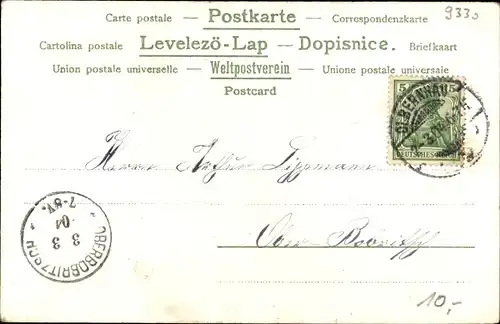 9330
Carte postale — Postkarte — Correspondenzkarte
Cartolina postale Levelezö-Lap — Dopisnice. Briefkaart
Union postale universelle — Weltpostverein — Unione postale universale
Postcard
5 5
DEUTSCHES REICH
OLBERNHAU
Herrn Arthur Lippmann
Ober-Bobritzsch
OBERBOBRITZSCH
3 3
04
7-8V.
10,-